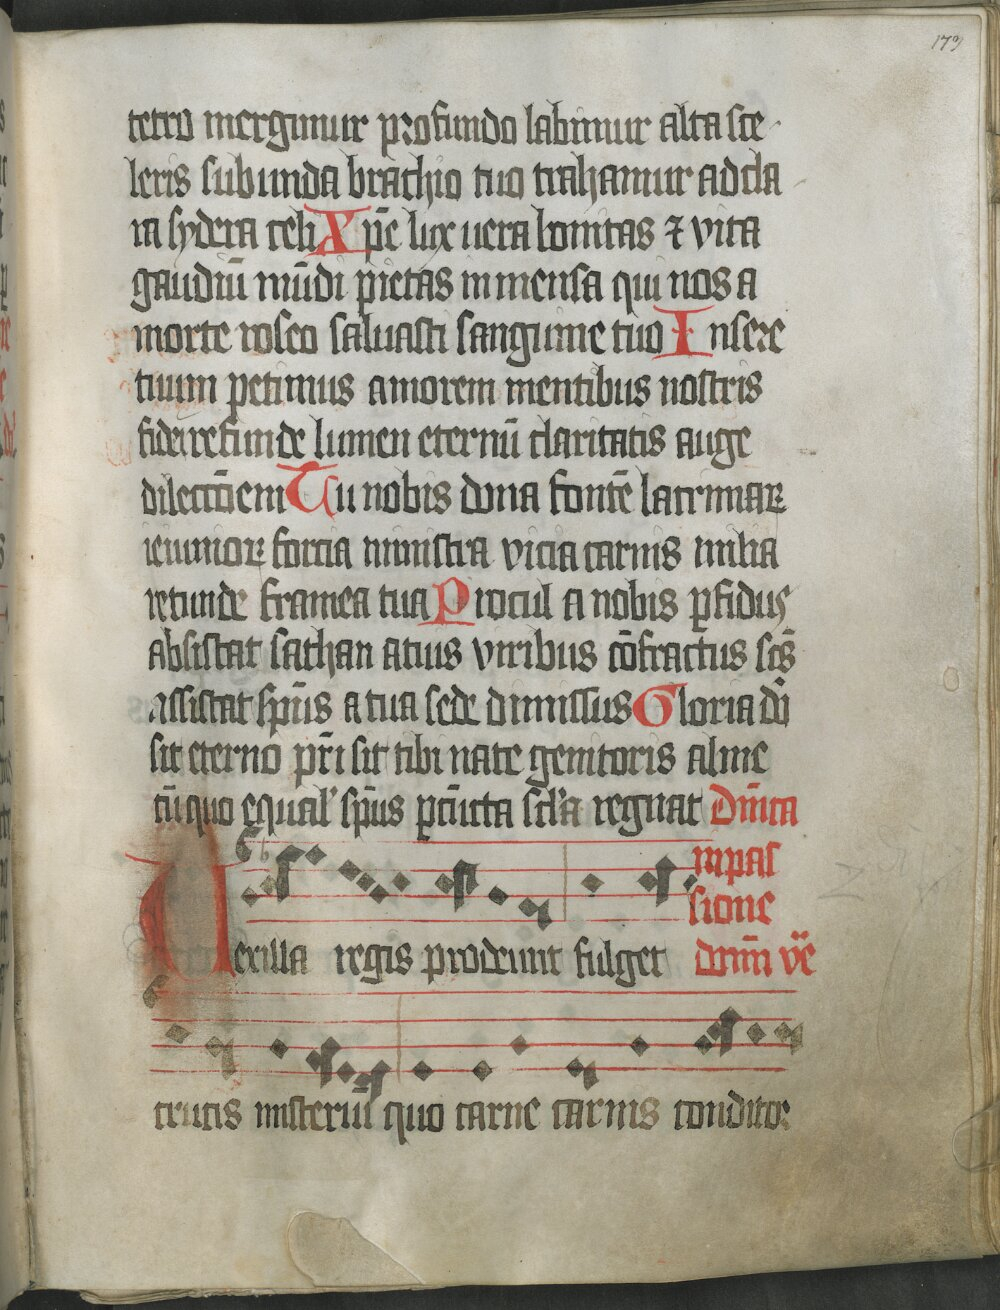 173
tetro mergimur profundo labimur alta sce
leris sub unda brachio tuo trahamur ad cla
ra sydera celi Xpē lux uera bonitas ⁊ vita
gaudiū mūdi pietas inmensa qui nos a
morte roseo saluasti sanguine tuo Insere
tuum petimus amorem mentibus nostris
fidei refunde lumen eternū claritatis auge
dilectōem Tu nobis dona fontē lacrimaꝝ
ieiunioꝝ forcia ministra vicia carnis milia
retunde framea tua Procul a nobis ꝑfidus
absistat sathan a tuis viribus cōfractus scūs
assistat spūs a tua sede dimissus Gloria dō
sit eterno pr̄i sit tibi nate genitoris alme
cū quo equal' spūs ꝑ cūcta regnat Dn̄ica
in pas
sione
Uexilla regis prodeunt fulget dn̄i
crucis misteriū quo carne carnis conditor